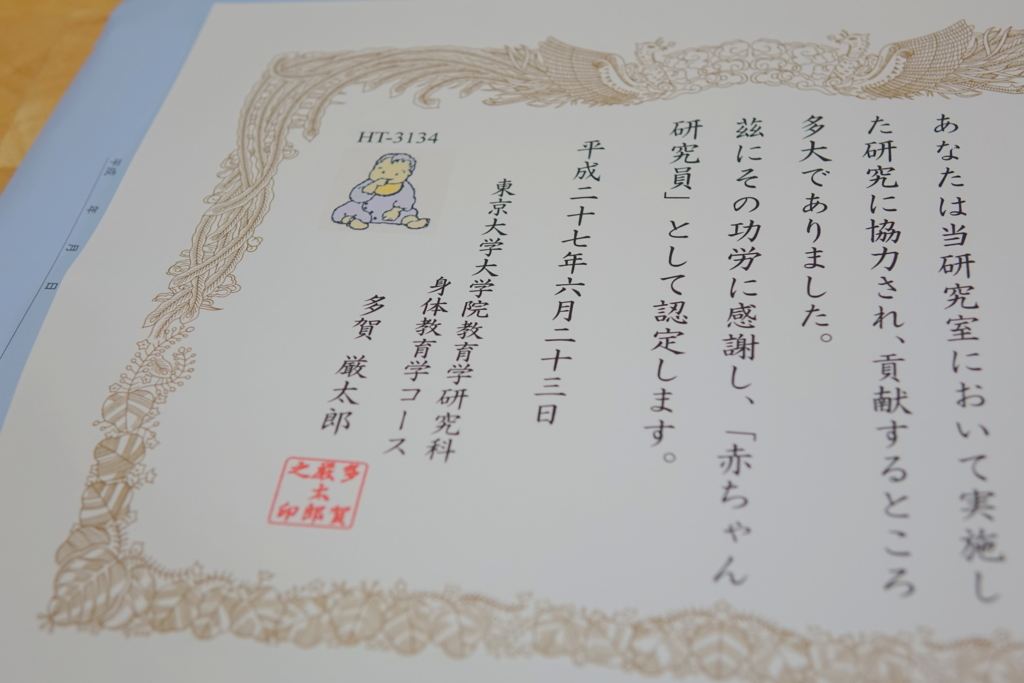 あなたは当研究室において実施し
た研究に協力され、貢献するところ
多大でありました。
茲にその功労に感謝し、「赤ちゃん
研究員」として認定します。
平成二十七年六月二十三日
東京大学大学院教育学研究科
身体教育学コース
多賀 厳太郎
HT-3134
多賀
厳太郎
之印
年 月 日